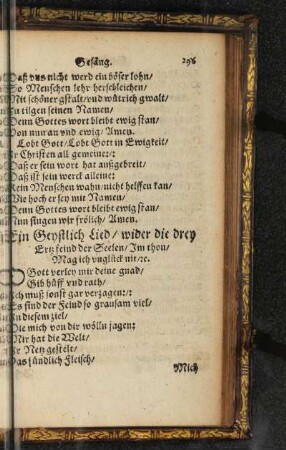 Gesäng. 296
Daß vns nicht werd ein böser lohn/
So Menschen lehr herschleichen/
Mit schöner gstalt/vnd wütrich gwalt/
Zu tilgen seinen Namen/
Denn Gottes wort bleibt ewig stan/
Von nun an vnd ewig/ Amen.
Lobt Gott/Lobt Gott in Ewigkeit/
Ir Christen all gemeine:/:
Daß er sein wort hat außgebreit/
Daß ist sein werck alleine:
Kein Menschen wahn/nicht helffen kan/
Wie hoch er sey mit Namen/
Denn Gottes wort bleibt ewig stan/
Nun singen wir frölich/ Amen.
Ein Geystlich Lied/ wider die drey
Ertzfeind der Seelen/ Im thon/
Mag ich vnglück nit/ꝛc.
O Gott verley mir deine gnad/
Gib hülff vnd rath/
Ich muß sonst gar verzagen:/:
Es sind der Feind so grausam viel/
In diesem ziel/
Die mich von dir wölln jagen:
Mir hat die Welt/
Ir Netz gestelt/
Das sündlich Fleisch/
Mich